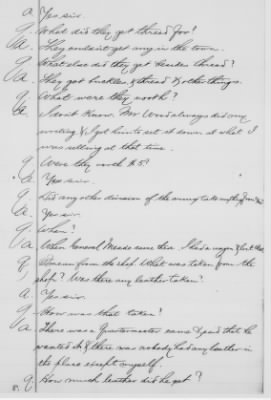 A. Yes sir.
Q. What did they get thread for?
A. They couldn't get any in the town.
Q. What else did they get besides thread?
A. They got buckles, & thread & other things.
Q. What were they worth?
A. I don't know. Mr Wood always did my
writing & I got him to set it down at what I
was selling at that time.
Q. Were they worth $5?
A. Yes sir.
Q. Did any other division of the army take anything from
A. Yes sir.
Q. When?
A. When General Meade came thro. I had a wagon &
Q. from the shop. What was taken from the
shop? Was there any leather taken?
A. Yes sir.
Q. How was that taken?
A. There was a Quartermaster came & said that he
wanted it & there was nobody had any leather in
the place except myself.
Q. How much leather did he get?